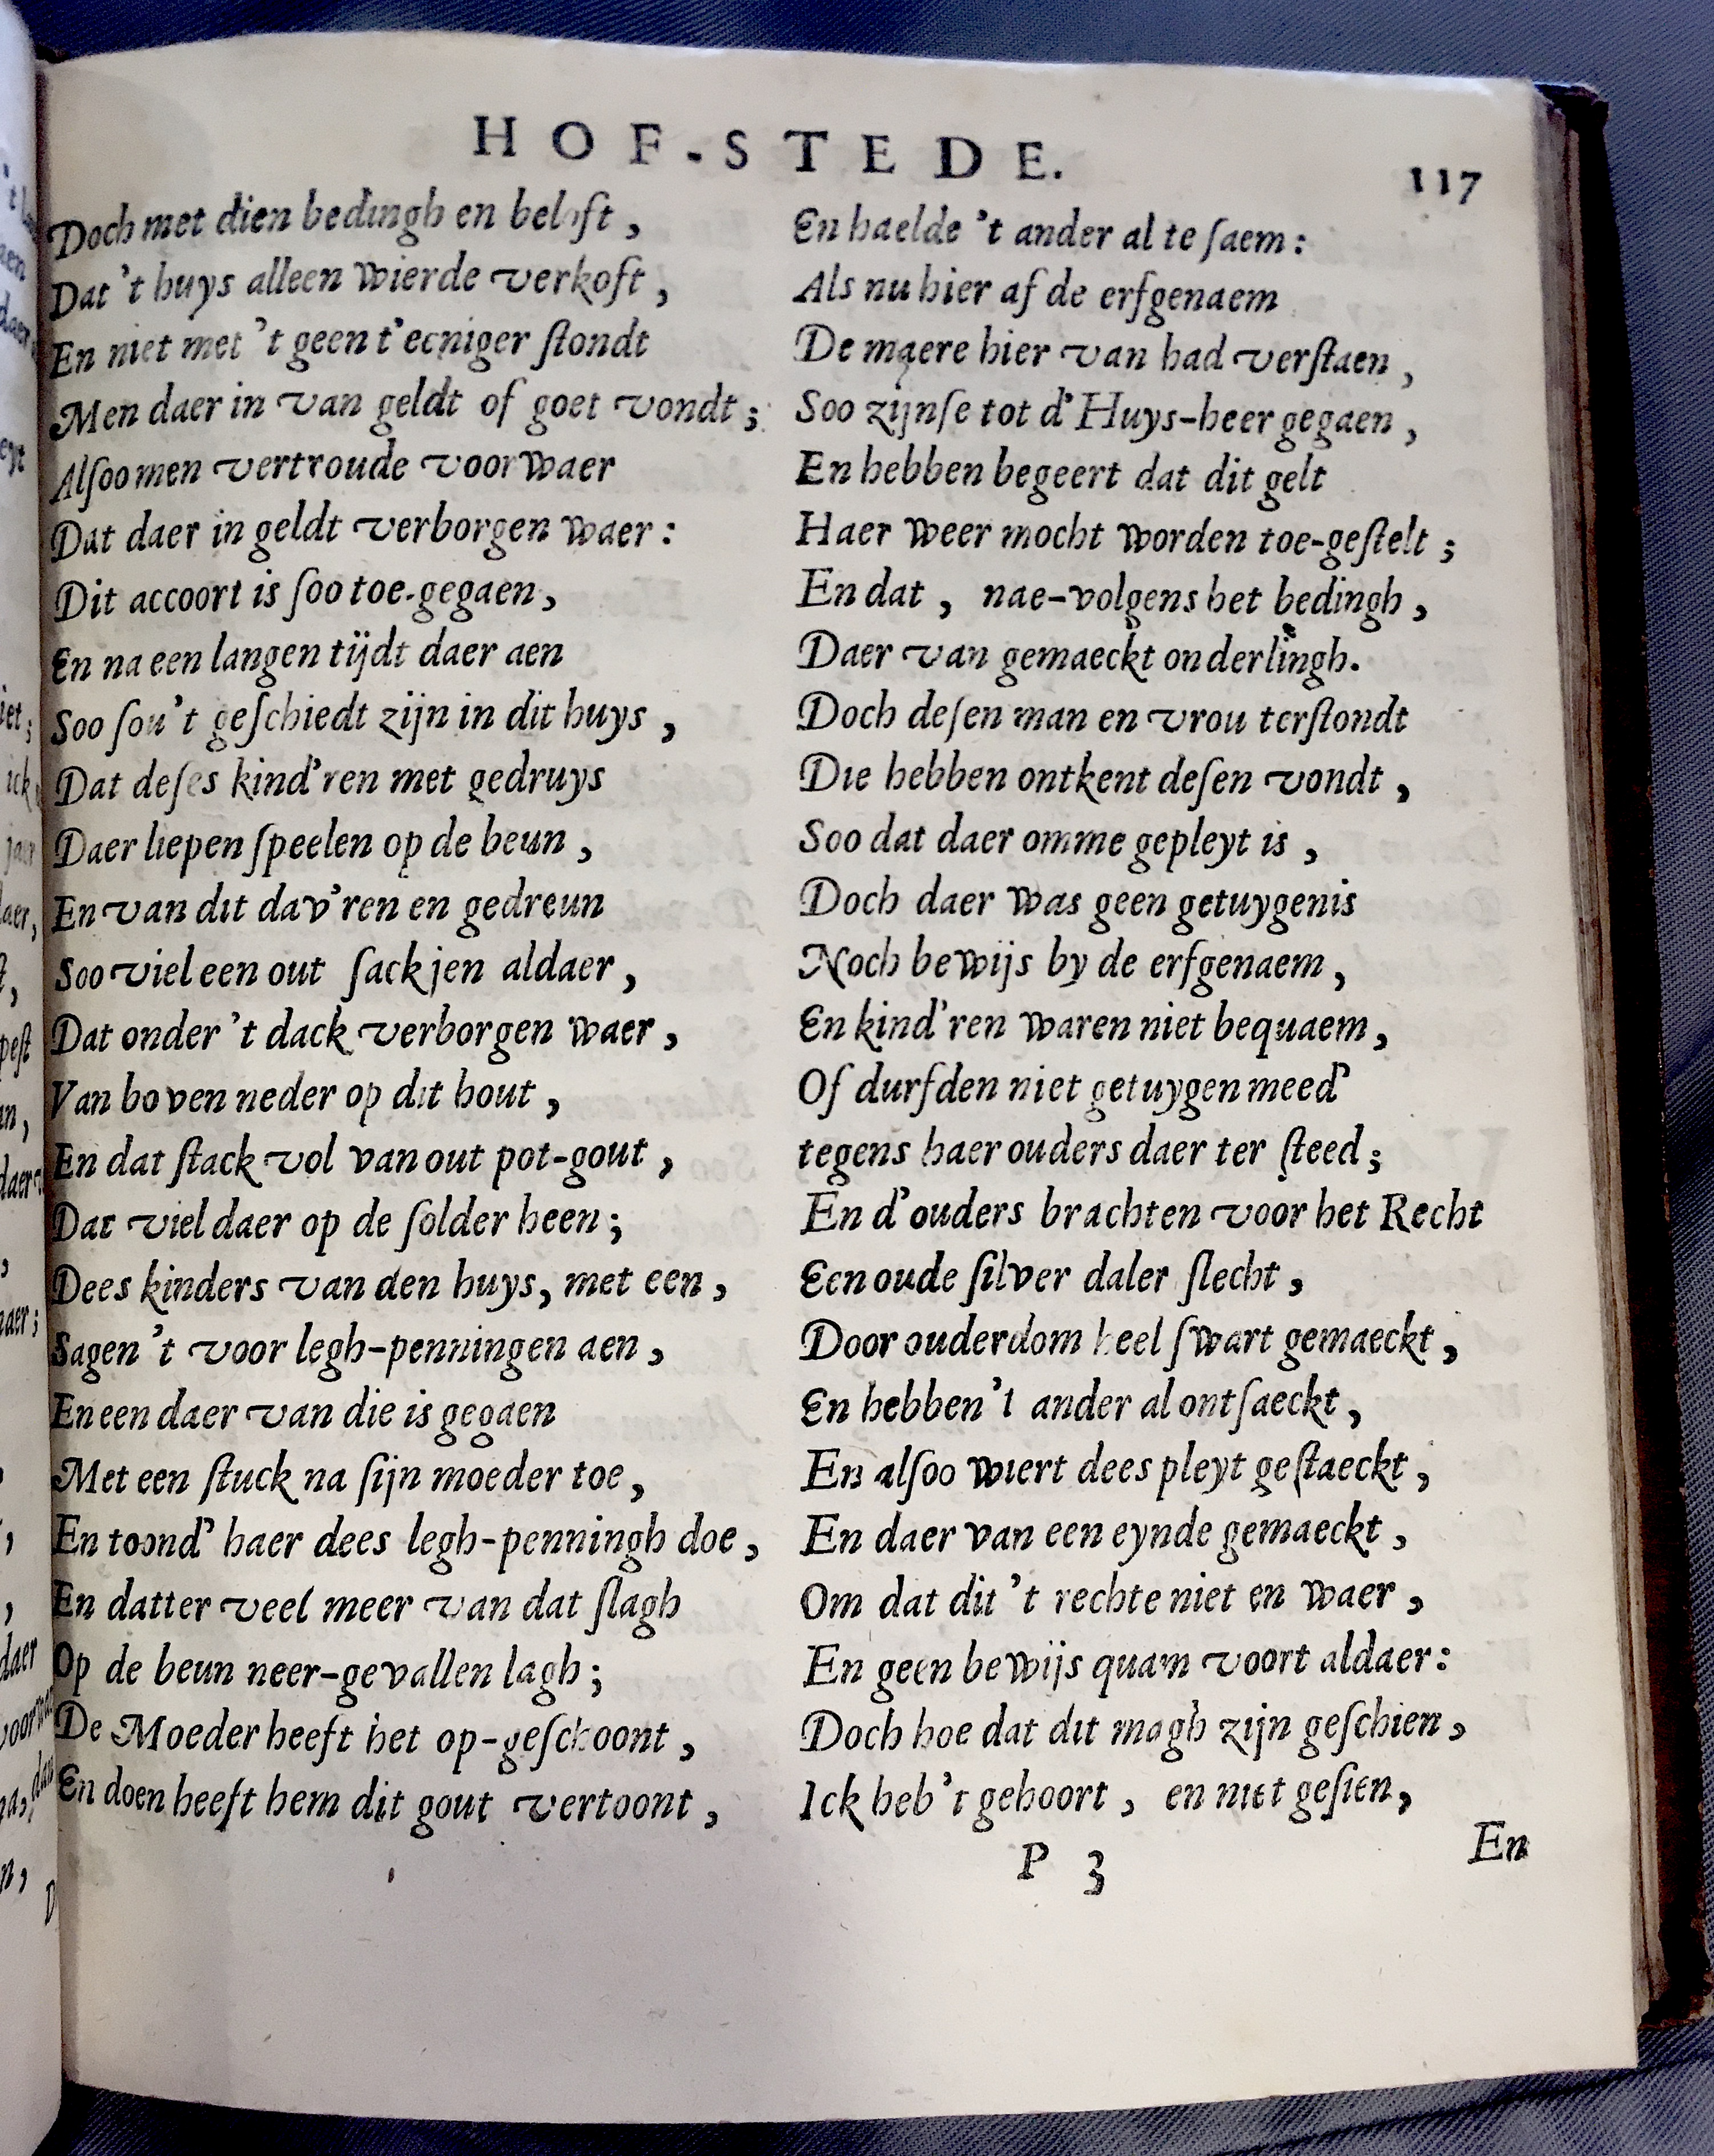 HOF-STEDE.
117
Doch met dien bedingh en beloft,
Dat 't huys alleen wierde verkoft,
En niet met 't geen t'eeniger ſtondt
Men daer in van geldt of goet vondt;
Alſoo men vertroude voorwaer
Dat daer in geldt verborgen waer:
Dit accoort is ſoo toe-gegaen,
En na een langen tijdt daer aen
Soo ſou't geſchiedt zijn in dit huys,
Dat deſes kind'ren met gedruys
Daer liepen ſpeelen op de beun,
En van dit dav'ren en gedreun
Soo viel een out ſackjen aldaer,
Dat onder 't dack verborgen waer,
Van boven neder op dit hout,
En dat ſtack vol van out pot-gout,
Dat viel daer op de ſolder heen;
Dees kinders van den huys, met een,
Sagen 't voor legh-penningen aen,
En een daer van die is gegaen
Met een ſtuck na ſijn moeder toe,
En toond' haer dees legh-penningh doe,
En datter veel meer van dat ſlagh
Op de beun neer-gevallen lagh;
De Moeder heeft het op-geſchoont,
En doen heeft hem dit gout vertoont,
En haelde 't ander al te ſaem:
Als nu hier af de erfgenaem
De maere hier van had verſtaen,
Soo zijnſe tot d'Huys-heer gegaen,
En hebben begeert dat dit gelt
Haer weer mocht worden toe-geſtelt;
En dat, nae-volgens het bedingh,
Daer van gemaeckt onderlingh.
Doch deſen man en vrou terſtondt
Die hebben ontkent deſen vondt,
Soo dat daer omme gepleyt is,
Doch daer was geen getuygenis
Noch bewijs by de erfgenaem,
En kind'ren waren niet bequaem,
Of durfden niet getuygen meed'
tegens haer ouders daer ter ſteed;
En d'ouders brachten voor het Recht
Een oude ſilver daler ſlecht,
Door ouderdom heel ſwart gemaeckt,
En hebben 't ander al ontſaeckt,
En alſoo wiert dees pleyt geſtaeckt,
En daer van een eynde gemaeckt,
Om dat dit 't rechte niet en waer,
En geen bewijs quam voort aldaer:
Doch hoe dat dit magh zijn geſchien,
Ick heb't gehoort, en niet geſien,
P 3
En